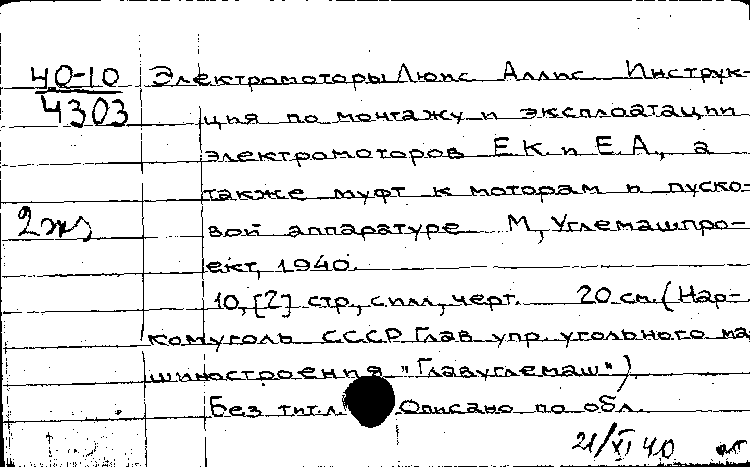 40-10 Электромоторы Люис Аллис. Инструк-
4303 ция по монтажу и эксплоатации
электромоторов Е.К. и Е.А., а
также муфт к моторам и пуско-
2 экз вой аппаратуре М, Углемашпро-
ект, 1940.
10, [2] стр., с илл., черт. 20 см. (Нар-
комуголь СССР. Глав. упр. угольного ма
шиностроения "Главуглемаш")
Без тит. л. Описано по обл.
21/XI 40